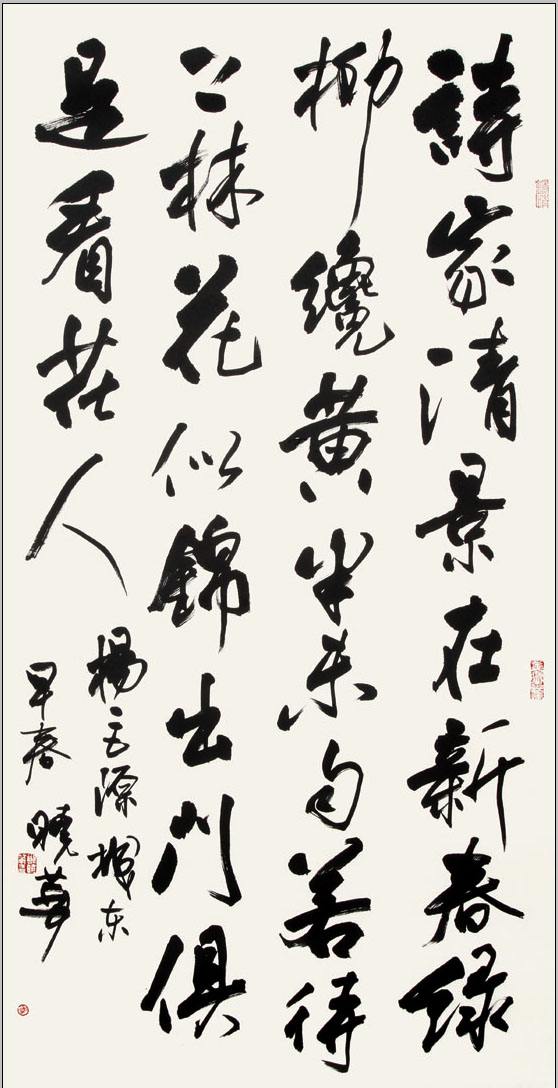 詩家清景在新春緑
柳纔黄半未匀若待
上林花似錦出門俱
是看花人
楊巨源城东
早春 曉